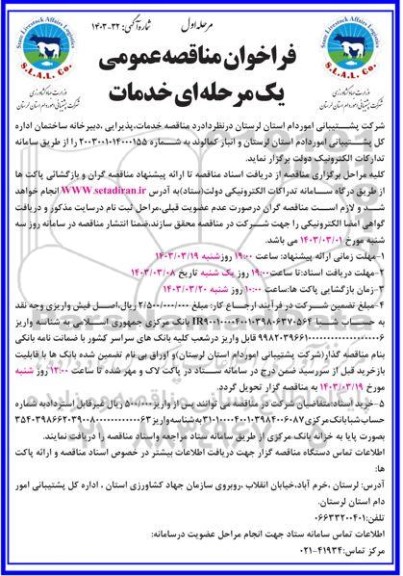 مرحله اول
شماره آگهی: ۳۲-۱۴۰۳
State Livestock Affairs Logistics
S.L.A.L. Co.
وزارت جهاد کشاورزی
شرکت پشتیبانی امور دام استان لرستان
فراخوان مناقصه عمومی
یک مرحله ای خدمات
State Livestock Affairs Logistics
S.L.A.L. Co.
وزارت جهاد کشاورزی
شرکت پشتیبانی امور دام استان لرستان
شرکت پشتیبانی اموردام استان لرستان درنظردارد مناقصه خدمات،پذیرایی ،دبیرخانه ساختمان اداره
کل پشتیبانی اموردام استان لرستان و انبار کمالوند به شماره ۲۰۰۳۰۰۱۰۱۴۰۰۰۱۵۵ را از طریق سامانه
تدارکات الکترونیک دولت برگزار نماید.
کلیه مراحل برگزاری مناقصه از دریافت اسناد مناقصه تا ارائه پیشنهاد مناقصه گران و بازگشائی پاکت ها
از طریق درگاه سامانه تدراکات الکترونیکی دولت(ستاد)به آدرس WWW.setadiran.ir انجام خواهد
شد و لازم است مناقصه گران درصورت عدم عضویت قبلی،مراحل ثبت نام درسایت مذکور و دریافت
گواهی امضا الکترونیکی را جهت شرکت در مناقصه محقق سازند،ضمنا انتشار مناقصه در سامانه روز سه
شنبه مورخ ۱۴۰۳/۰۳/۰۱ می باشد.
۱-مهلت زمانی ارائه پیشنهاد: ساعت ۱۹:۰۰ روزشنبه ۱۴۰۳/۰۳/۱۹
۲-مهلت دریافت اسناد:تا ساعت۱۹:۰۰ روز یک شنبه تاریخ ۱۴۰۳/۰۳/۰۸
۳-زمان بازگشایی پاکت ها:ساعت ۱۰:۰۰ روز شنبه ۱۴۰۳/۰۳/۲۰
۴-مبلغ تضمین شرکت در فرآیند ارجاع کار: مبلغ ۲/۵۰۰/۰۰۰/۰۰۰ ریال،اصل فیش واریزی وجه نقد
به حساب شبا بانک مرکزی جمهوری اسلامی به شناسه واریز
قابل واریز درشعب کلیه بانک های سراسر کشور یا ضمانت نامه بانکی
بنام مناقصه گذار(شرکت پشتیبانی اموردام استان لرستان)و اوراق بی نام تضمین شده بانک ها با قابلیت
بازخرید قبل از سررسید ضمن درج در سامانه ستاد در پاکت لاک و مهر شده تا ساعت ۱۲:۰۰ روز شنبه
مورخ ۱۴۰۳/۰۳/۱۹ به مناقصه گزار تحویل گردد.
۵-خرید اسناد:متقاضیان شرکت در مناقصه می توانند پس از واریز۵۰۰/۰۰۰ریال غیرقابل استردادبه شماره
حساب شبابانک مرکزی به شناسه واریز
بصورت پایا به خزانه بانک مرکزی از طریق سامانه ستاد مراجعه واسناد مناقصه را دریافت نمایند.
اطلاعات تماس دستگاه مناقصه گزار جهت دریافت اطلاعات بیشتر در خصوص اسناد مناقصه و ارائه پاکت
ها:
آدرس: لرستان ،خرم آباد،خیابان انقلاب ،روبروی سازمان جهاد کشاورزی استان ، اداره کل پشتیبانی امور
دام استان لرستان.
تلفن:۰۶۶۳۳۲۰۰۴۰۱
اطلاعات تماس سامانه ستاد جهت انجام مراحل عضویت درسامانه:
مرکز تماس:۴۱۹۳۴-۰۲۱